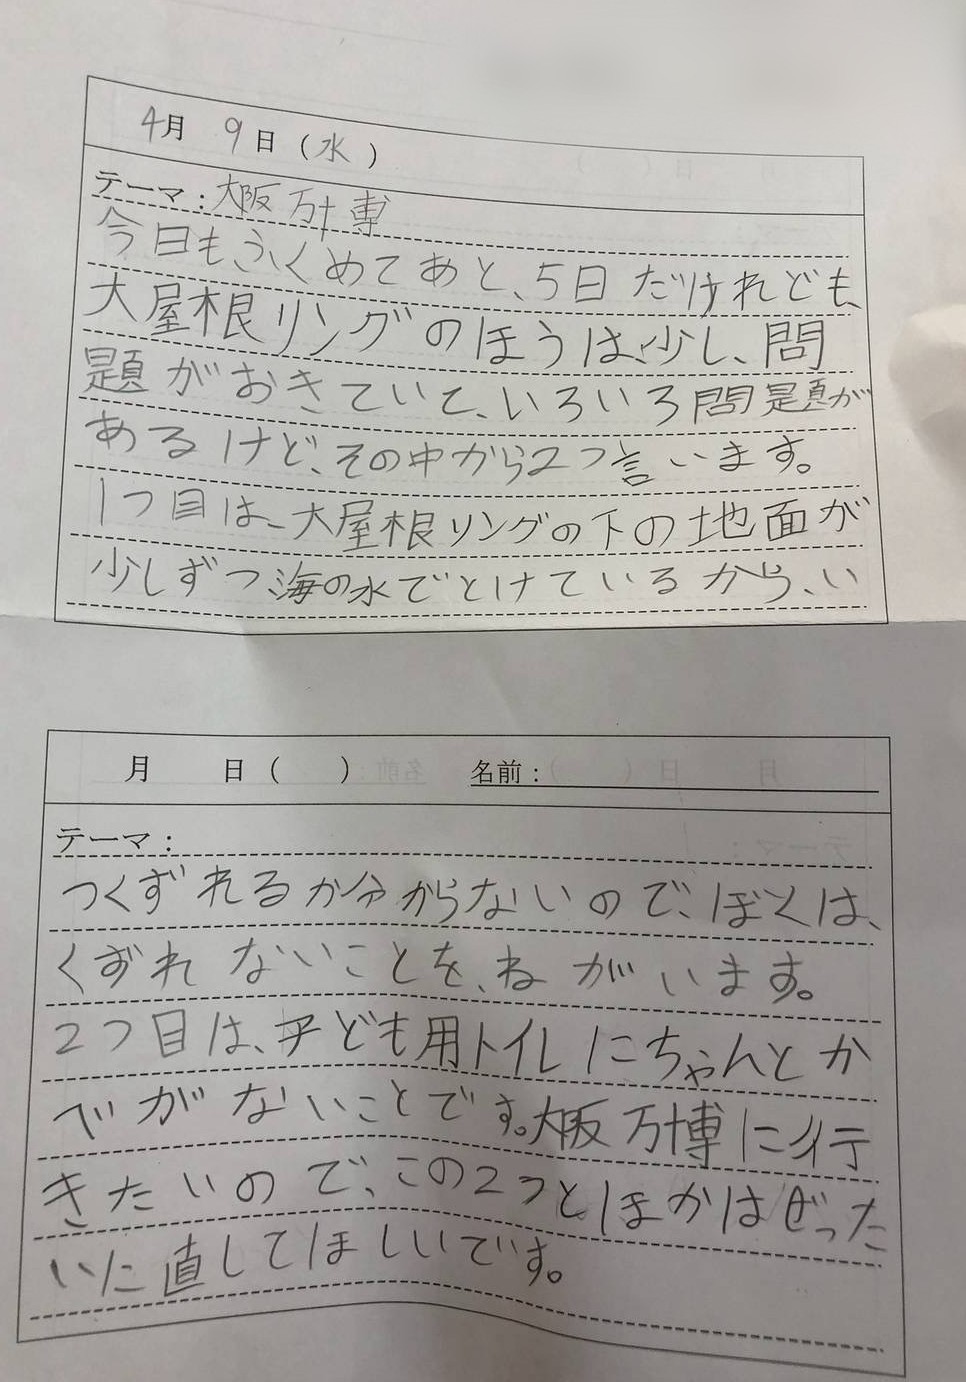 4月 9日（水）
テーマ：大阪万博
今日もふくめてあと、5日だけれども、
大屋根リングのほうは、少し、問
題がおきていて、いろいろ問題が
あるけど、その中から2つ言います。
1つ目は、大屋根リングの下の地面が
少しずつ海の水でとけているから、い
月 日（ ） 名前：
テーマ：
つくずれるか分からないので、ぼくは、
くずれないことを、ねがいます。
2つ目は、子ども用トイレにちゃんとか
べがないことです。大阪万博に行
きたいので、この2つとほかはぜった
いに直してほしいです。